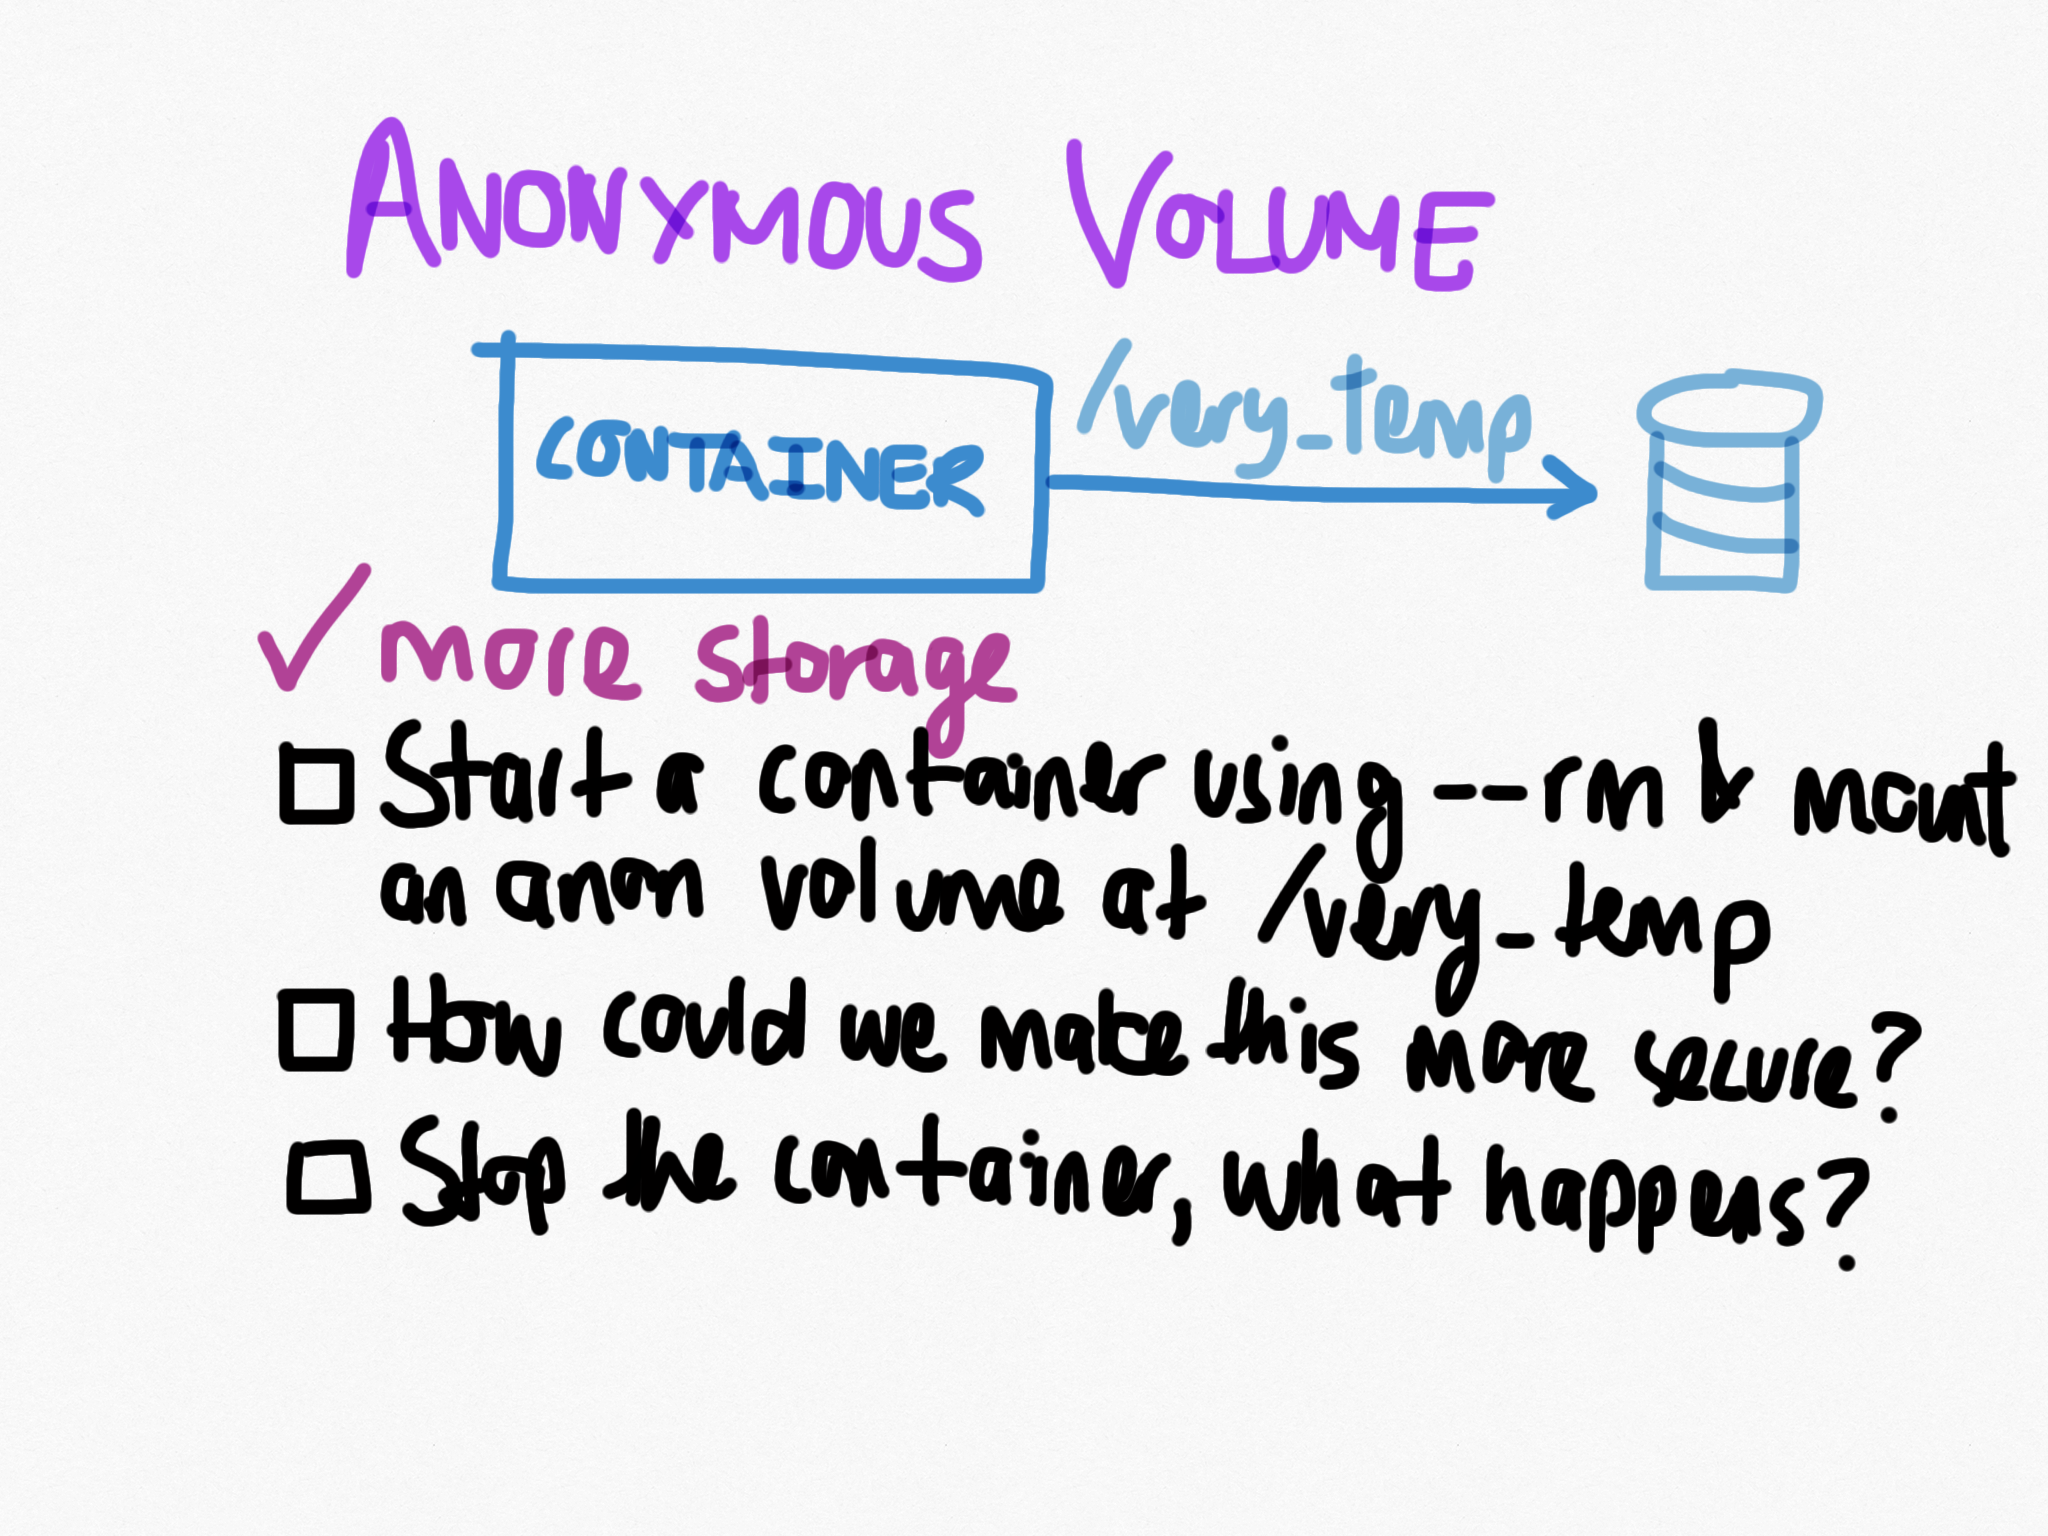 ANONYMOUS VOLUME
CONTAINER
/very_temp
✓ more storage
☐ Start a container using --rm & mount
an anon volume at /very_temp
☐ How could we make this more secure?
☐ Stop the container, what happens?